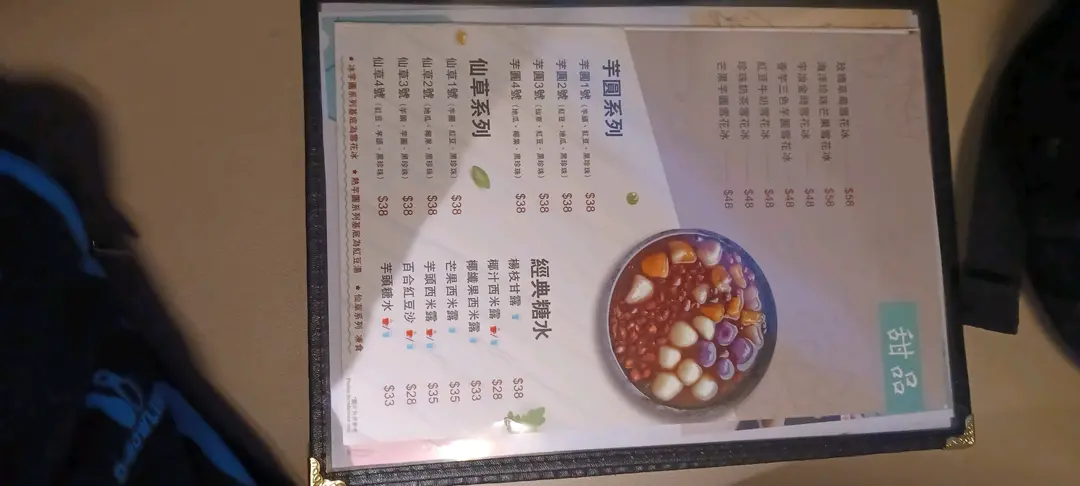 甜品
玫瑰草莓雪花冰 $58
海洋珍珠芒果雪花冰 $58
宇治金時雪花冰 $48
香芋三色芋圓雪花冰 $48
紅豆牛奶雪花冰 $48
珍珠奶茶雪花冰 $48
芒果芋圓雪花冰 $48
芋圓系列
芋圓1號 (芋頭，紅豆，黑珍珠) $38
芋圓2號 (紅豆，地瓜，黑珍珠) $38
芋圓3號 (仙草，紅豆，黑珍珠) $38
芋圓4號 (地瓜，椰果，黑珍珠) $38
仙草系列
仙草1號 (芋圓，紅豆，黑珍珠) $38
仙草2號 (地瓜，椰果，黑珍珠) $38
仙草3號 (芋頭，芋圓，黑珍珠) $38
仙草4號 (紅豆，芋頭，黑珍珠) $38
經典糖水
楊枝甘露 $38
椰汁西米露 / $28
椰纖果西米露 $33
芒果西米露 $35
芋頭西米露 / $35
百合紅豆沙 / $28
芋頭糖水 / $33
★ 冰芋圓系列基底為雪花冰 ★ 熱芋圓系列基底為紅豆湯 ★ 仙草系列 凍食